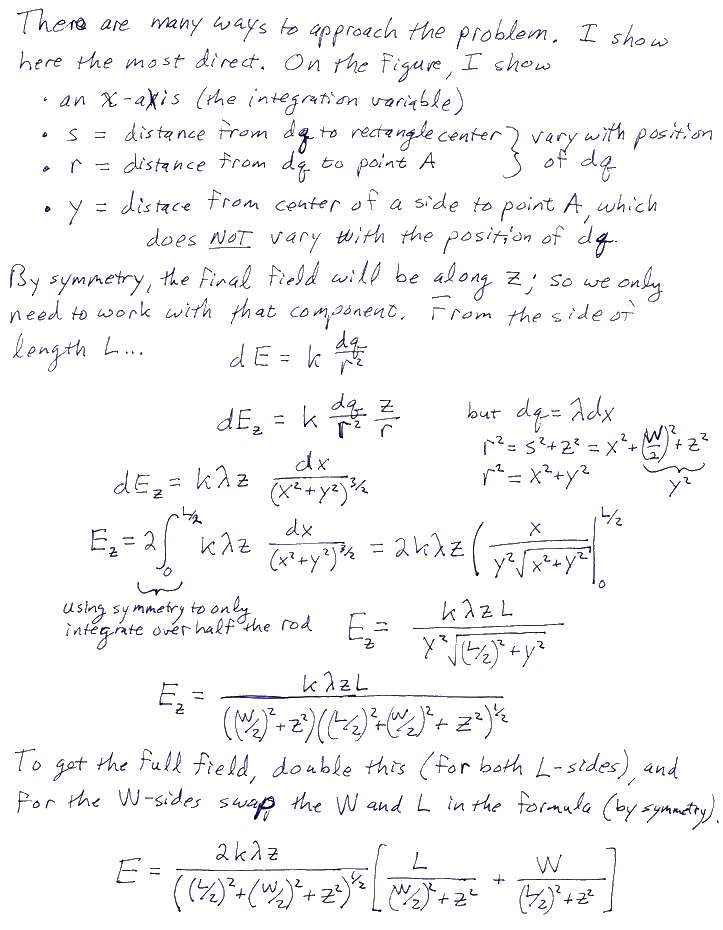 There are many ways to approach the problem. I show
here the most direct. On the figure, I show
· an x-axis (the integration variable)
• s = distance from dq to rectangle center } vary with position
• r = distance from dq to point A } of dq
• y = distace from center of a side to point A, which
does NOT vary with the position of dq.
By symmetry, the final field will be along z; so we only
need to work with that component. From the side of
length L...
dE = k dq/r²
dE_z = k dq/r² z/r but dq = λdx
r² = s²+z² = x²+(W/2)²+z²
r² = x²+y² y²
dE_z = kλz dx/(x²+y²)^3/2
E_z = 2∫₀^L/2 kλz dx/(x²+y²)^3/2 = 2kλz ( x/(y²√(x²+y²)) |₀^L/2
using symmetry to only
integrate over half the rod
E_z = kλzL/(y²√((L/2)²+y²))
E_z = kλzL/(((W/2)²+z²)((L/2)²+(W/2)²+z²)^1/2)
To get the full field, double this (for both L-sides), and
for the W-sides swap the W and L in the formula (by symmetry).
E = 2kλz/((L/2)²+(W/2)²+z²)^1/2 [ L/((W/2)²+z²) + W/((L/2)²+z²) ]